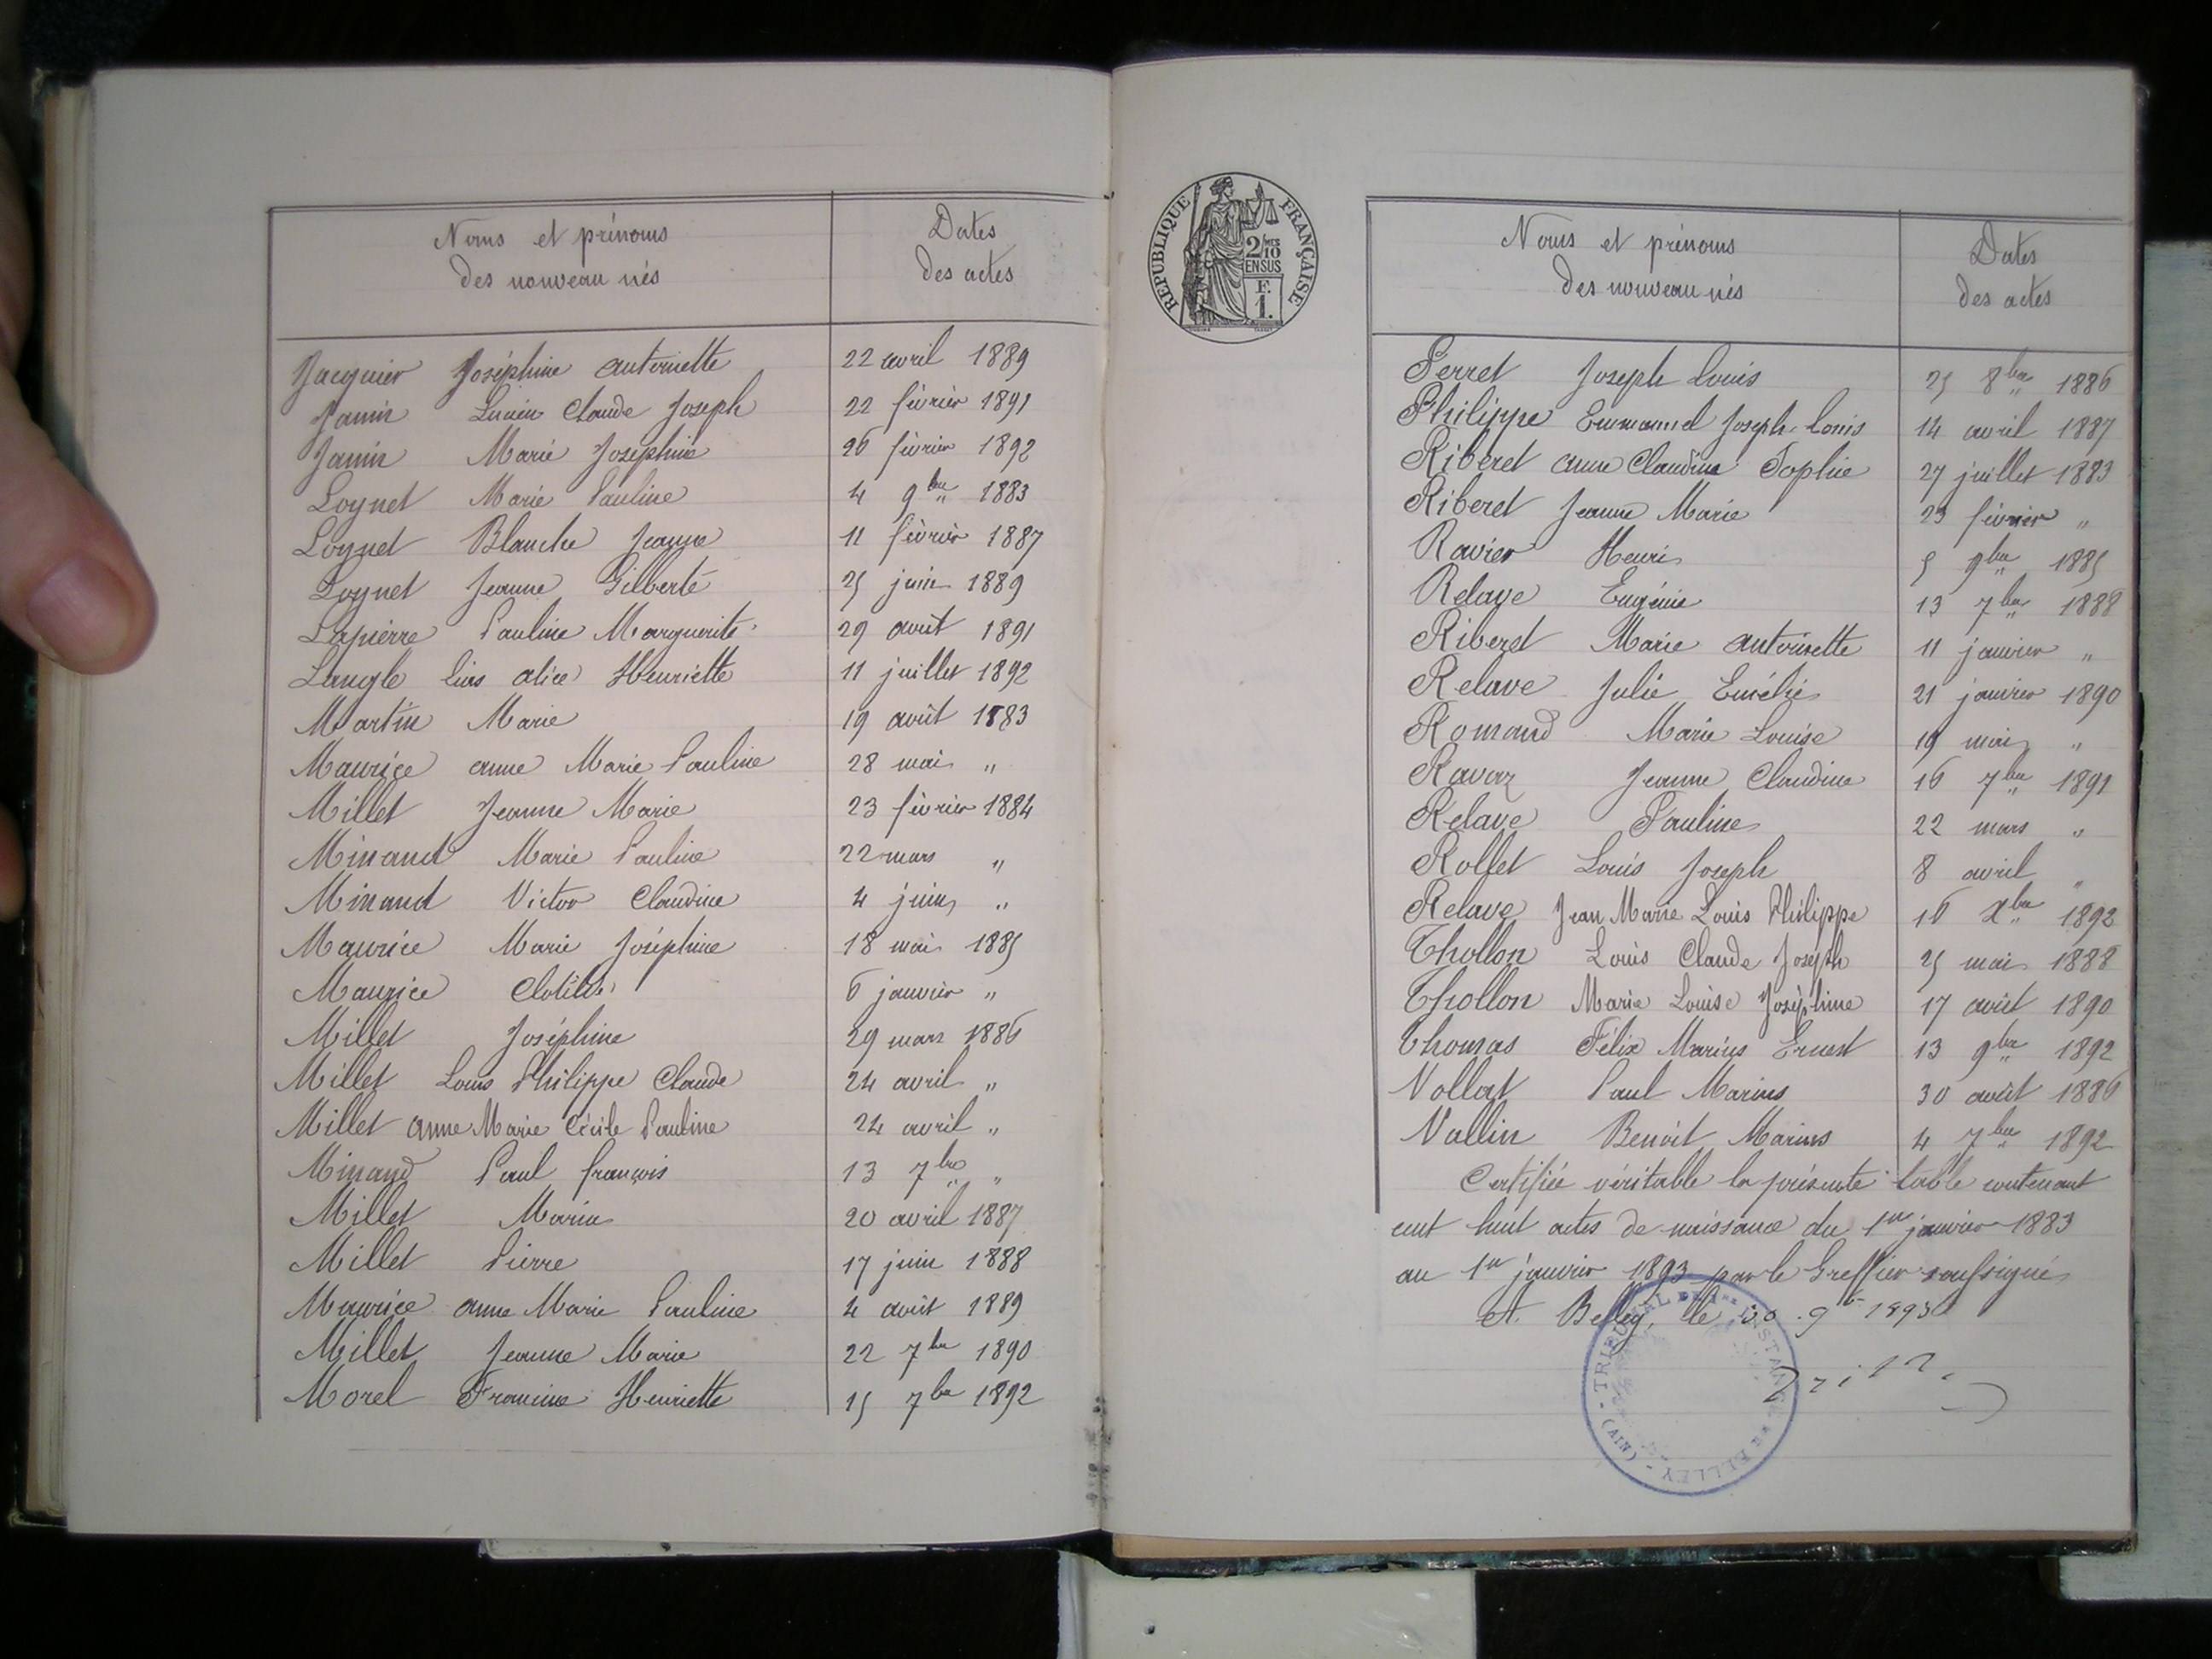 Noms et prénoms
des nouveau nés
Dates
des actes
Jacquier Joséphine antoinette 22 avril 1889
Jamin Lucien Claude Joseph 22 février 1891
Jamin Marie Joséphine 26 février 1892
Loynet Marie Pauline 4 9bre 1883
Loynet Blanche Jeanne 11 février 1887
Loynet Jeanne Gilberte 25 juin 1889
Lapierre Pauline Marguerite 29 août 1891
Langle alice Henriette 11 juillet 1892
Martin Marie 19 août 1883
Maurice anne Marie Pauline 28 mai "
Millet Jeanne Marie 23 février 1884
Minand Marie Pauline 22 mars "
Minand Victor Claudine 4 juin "
Maurice Marie Joséphine 18 mai 1885
Maurice Clotilde 6 janvier "
Millet Joséphine 29 mars 1886
Millet Louis Philippe Claude 24 avril "
Millet anne Marie Cécile Pauline 24 avril "
Minand Paul françois 13 7bre "
Millet Maria 20 avril 1887
Millet Pierre 17 juin 1888
Maurice anne Marie Pauline 4 août 1889
Millet Jeanne Marie 22 7bre 1890
Morel Francine Henriette 15 7bre 1892
REPUBLIQUE FRANÇAISE
2/10 MES
EN SUS
F.
1.
Noms et prénoms
des nouveau nés
Dates
des actes
Perret Joseph Louis 25 8bre 1886
Philippe Emmanuel Joseph Louis 14 avril 1887
Riberet anne Claudine Sophie 27 juillet 1883
Riberet Jeanne Marie 23 février "
Ravier Henri 5 9bre 1885
Relave Eugénie 13 7bre 1888
Riberet Marie antoinette 11 janvier "
Relave Julie Emélie 21 janvier 1890
Romand Marie Louise 19 mai "
Ravaz Jeanne Claudine 16 7bre 1891
Relave Pauline 22 mars "
Rollet Louis Joseph 8 avril "
Relave Jean Marie Louis Philippe 16 Xbre 1892
Thollon Louis Claude Joseph 25 mai 1888
Thollon Marie Louise Joséphine 17 août 1890
Thomas Félix Marius Ernest 13 9bre 1892
Vollat Paul Marius 30 août 1886
Vallin Benoit Marius 4 7bre 1892
Certifiée véritable la présente table contenant
cent huit actes de naissance du 1er janvier 1883
au 1er janvier 1893 par le Greffier soussigné
A Belley, le 30 9b 1893
TRIBUNAL DE 1re INSTANCE DE BELLEY - (AIN) -